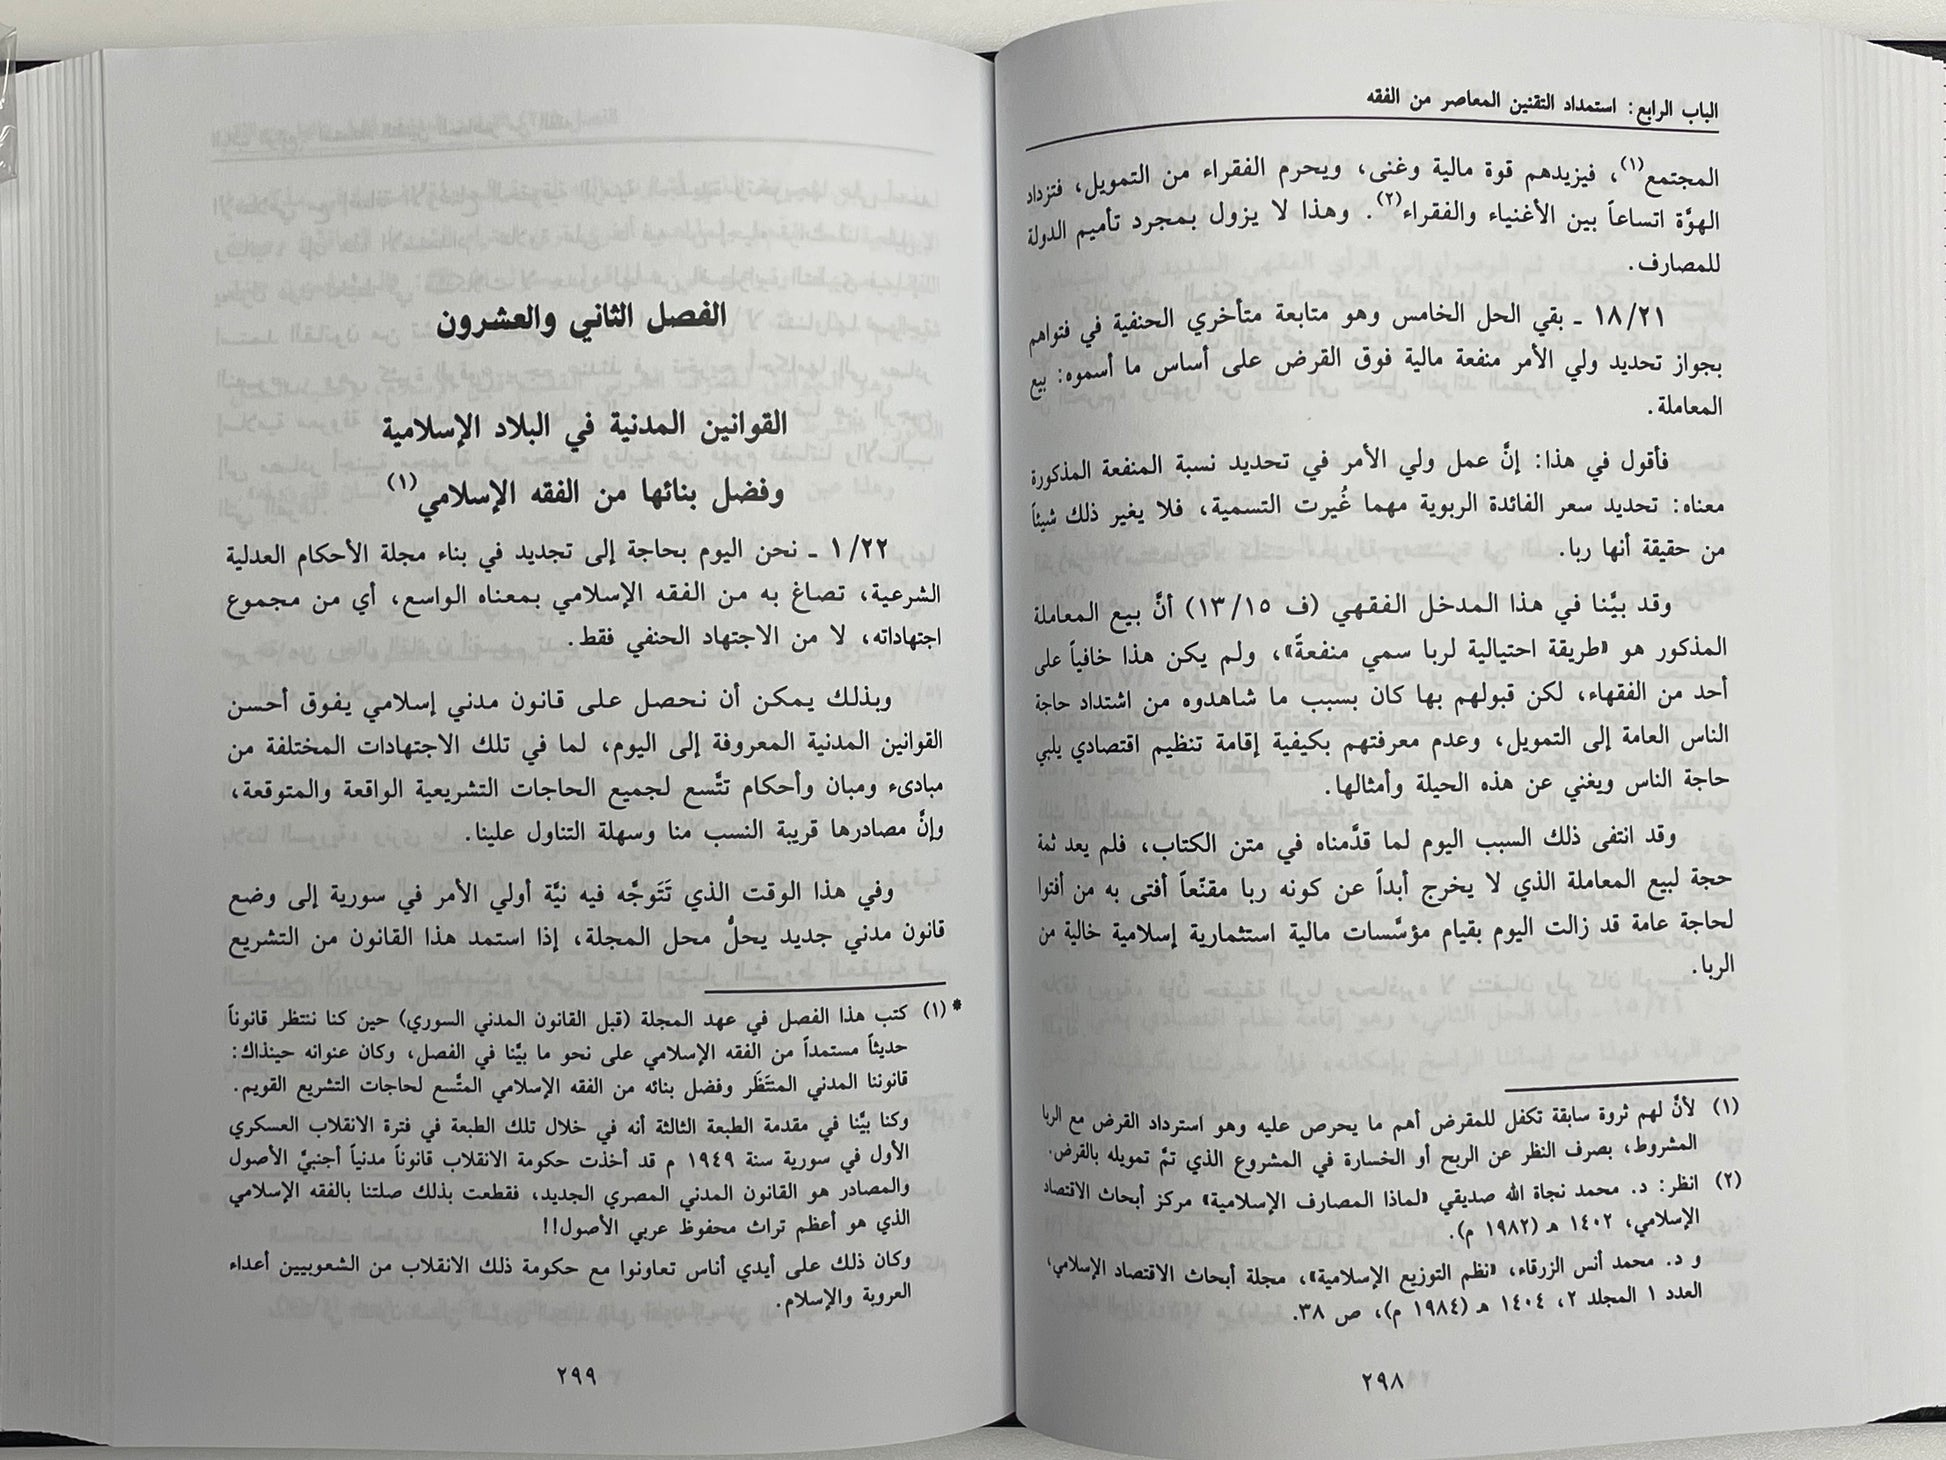 الباب الرابع: استمداد التقنين المعاصر من الفقه
المجتمع(١)، فيزيدهم قوة مالية وغنى، ويحرم الفقراء من التمويل، فتزداد
الهوَّة اتساعاً بين الأغنياء والفقراء(٢). وهذا لا يزول بمجرد تأميم الدولة
للمصارف.
١٨/٢١ ـ بقي الحل الخامس وهو متابعة متأخري الحنفية في فتواهم
بجواز تحديد ولي الأمر منفعة مالية فوق القرض على أساس ما أسموه: بيع
المعاملة.
فأقول في هذا: إنَّ عمل ولي الأمر في تحديد نسبة المنفعة المذكورة
معناه: تحديد سعر الفائدة الربوية مهما غُيرت التسمية، فلا يغير ذلك شيئاً
من حقيقة أنها ربا.
وقد بيَّنا في هذا المدخل الفقهي (ف ١٣/١٥) أنَّ بيع المعاملة
المذكور هو «طريقة احتيالية لربا سمي منفعةً»، ولم يكن هذا خافياً على
أحد من الفقهاء، لكن قبولهم بها كان بسبب ما شاهدوه من اشتداد حاجة
الناس العامة إلى التمويل، وعدم معرفتهم بكيفية إقامة تنظيم اقتصادي يلبي
حاجة الناس ويغني عن هذه الحيلة وأمثالها.
وقد انتفى ذلك السبب اليوم لما قدَّمناه في متن الكتاب، فلم يعد ثمة
حجة لبيع المعاملة الذي لا يخرج أبداً عن كونه ربا مقنّعاً أفتى به من أفتوا
لحاجة عامة قد زالت اليوم بقيام مؤسَّسات مالية استثمارية إسلامية خالية من
الربا.
(١) لأنَّ لهم ثروة سابقة تكفل للمقرض أهم ما يحرص عليه وهو استرداد القرض مع الربا
المشروط، بصرف النظر عن الربح أو الخسارة في المشروع الذي تمَّ تمويله بالقرض.
(٢) انظر: د. محمد نجاة الله صديقي «لماذا المصارف الإسلامية» مركز أبحاث الاقتصاد
الإسلامي، ١٤٠٢ هـ (١٩٨٢ م).
و د. محمد أنس الزرقاء، «نظم التوزيع الإسلامية»، مجلة أبحاث الاقتصاد الإسلامي،
العدد ١ المجلد ٢، ١٤٠٤ هـ (١٩٨٤ م)، ص ٣٨.
٢٩٨
الفصل الثاني والعشرون
القوانين المدنية في البلاد الإسلامية
وفضل بنائها من الفقه الإسلامي(١)
١/٢٢ ـ نحن اليوم بحاجة إلى تجديد في بناء مجلة الأحكام العدلية
الشرعية، تصاغ به من الفقه الإسلامي بمعناه الواسع، أي من مجموع
اجتهاداته، لا من الاجتهاد الحنفي فقط.
وبذلك يمكن أن نحصل على قانون مدني إسلامي يفوق أحسن
القوانين المدنية المعروفة إلى اليوم، لما في تلك الاجتهادات المختلفة من
مبادىء ومبان وأحكام تتَّسع لجميع الحاجات التشريعية الواقعة والمتوقعة،
وإنَّ مصادرها قريبة النسب منا وسهلة التناول علينا.
وفي هذا الوقت الذي تَتَوجَّه فيه نيَّة أولي الأمر في سورية إلى وضع
قانون مدني جديد يحلُّ محل المجلة، إذا استمد هذا القانون من التشريع
* (١) كتب هذا الفصل في عهد المجلة (قبل القانون المدني السوري) حين كنا ننتظر قانوناً
حديثاً مستمداً من الفقه الإسلامي على نحو ما بيَّنا في الفصل، وكان عنوانه حينذاك:
قانوننا المدني المنتَظَر وفضل بنائه من الفقه الإسلامي المتَّسع لحاجات التشريع القويم.
وكنا بيَّنا في مقدمة الطبعة الثالثة أنه في خلال تلك الطبعة في فترة الانقلاب العسكري
الأول في سورية سنة ١٩٤٩ م قد أخذت حكومة الانقلاب قانوناً مدنياً أجنبيَّ الأصول
والمصادر هو القانون المدني المصري الجديد، فقطعت بذلك صلتنا بالفقه الإسلامي
الذي هو أعظم تراث محفوظ عربي الأصول!!
وكان ذلك على أيدي أناس تعاونوا مع حكومة ذلك الانقلاب من الشعوبيين أعداء
العروبة والإسلام.
٢٩٩